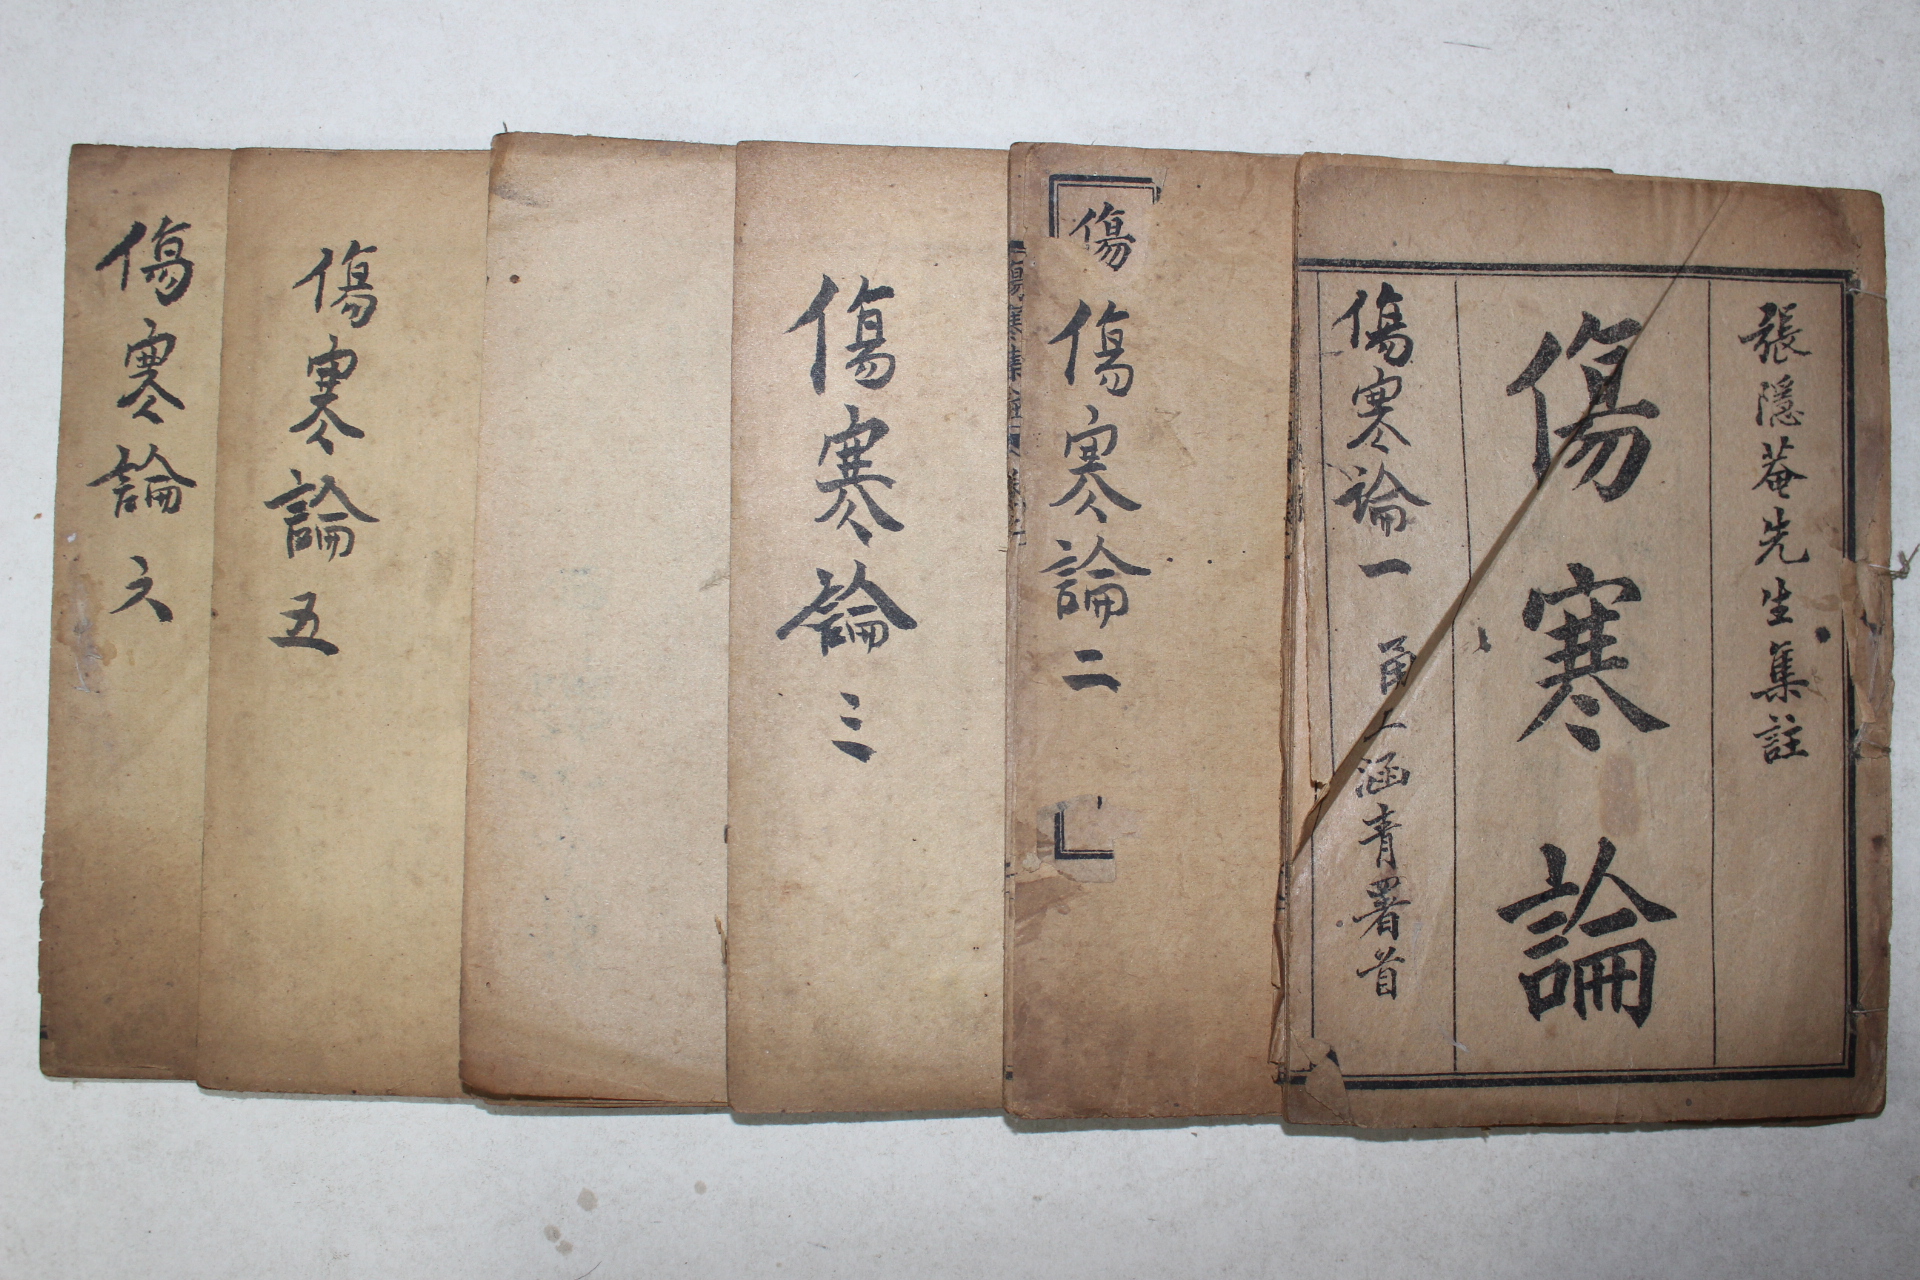 張隱菴先生集註
傷寒論
傷寒論一
甬上涵青署首
傷
傷寒論二
傷寒論三
傷寒論五
傷寒論六